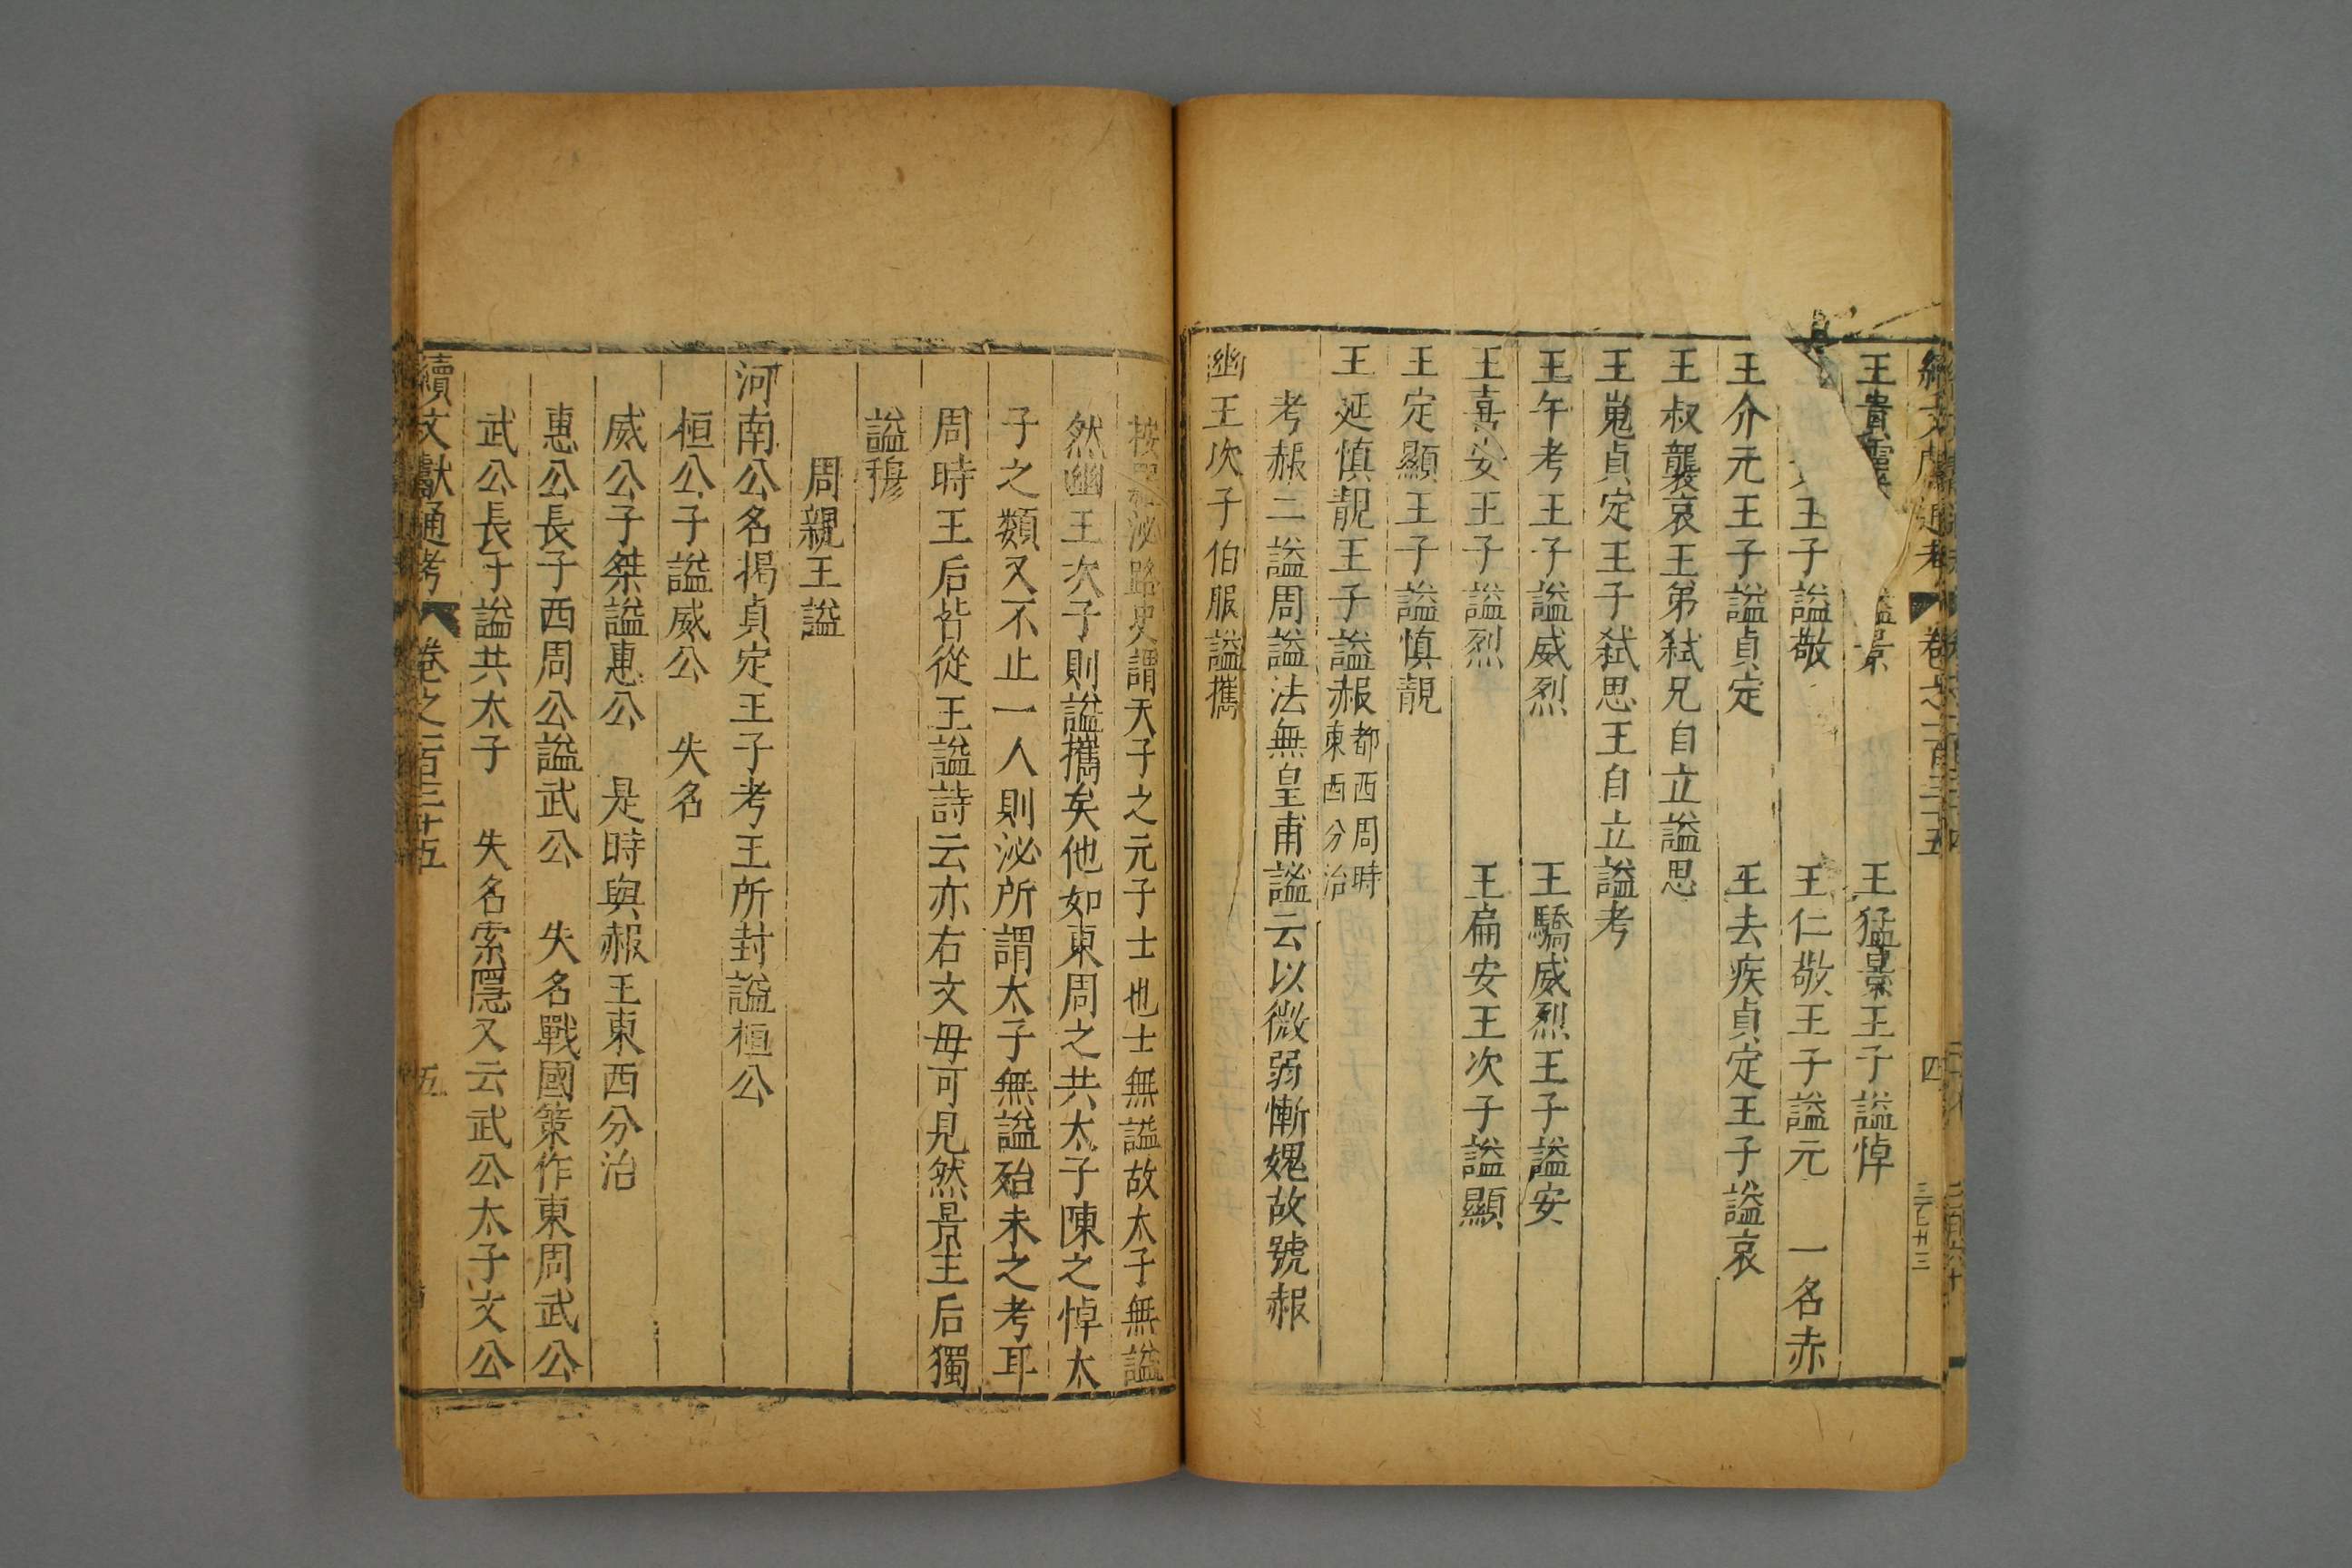 續文獻通考 卷之一百三十五 四
王貴靈 謚景 王猛景王子謚悼
王子謚敬 王仁敬王子謚元 一名赤
王介元王子謚貞定 王去疾貞定王子謚哀
王叔襲哀王弟弒兄自立謚思
王嵬貞定王子弒思王自立謚考
王午考王子謚威烈 王驕威烈王子謚安
王喜安王子謚烈 王扁安王次子謚顯
王定顯王子謚慎靚
王延慎靚王子謚赧都西周時東西分治
考赧二謚周謚法無皇甫謐云以微弱慚媿故號赧
幽王次子伯服謚攜
按羅泌路史謂天子之元子士也士無謚故太子無謚
然幽王次子則謚攜矣他如東周之共太子陳之悼太
子之類又不止一人則泌所謂太子無謚殆未之考耳
周時王后皆從王謚詩云亦右文毋可見然景王后獨
謚穆
周親王謚
河南公名揭貞定王子考王所封謚桓公
桓公子謚威公 失名
威公子桀謚惠公 是時與赧王東西分治
惠公長子西周公謚武公 失名戰國策作東周武公
武公長子謚共太子 失名索隱又云武公太子文公
續文獻通考 卷之一百三十五 五